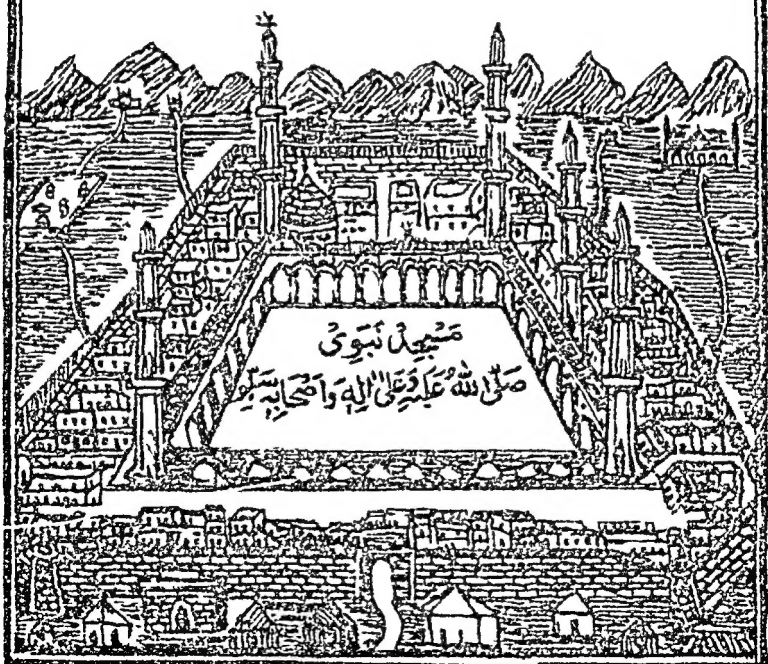 مَسْجِدْ نَبَوِیْ
صَلَّى اللهُ عَلَيْهِ وَعَلٰى اٰلِهٖ وَاَصْحَابِهٖ وَسَلَّمْ